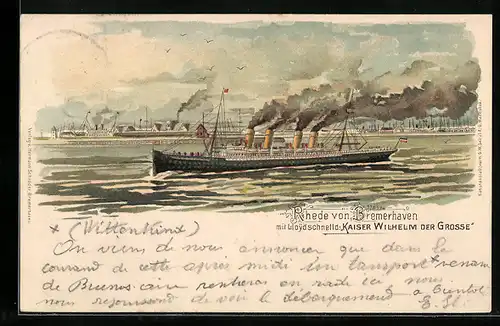 Rhede von Bremerhaven
mit Lloydschnelld. "KAISER WILHELM DER GROSSE"
x (Wittenkind)
On viens de nous annoncer que dans le
courand de cette après midi ion transport x venan
de Buenos-aire rentrera en rade ici nous
nous rejouissons de voir le débarquement à bientot